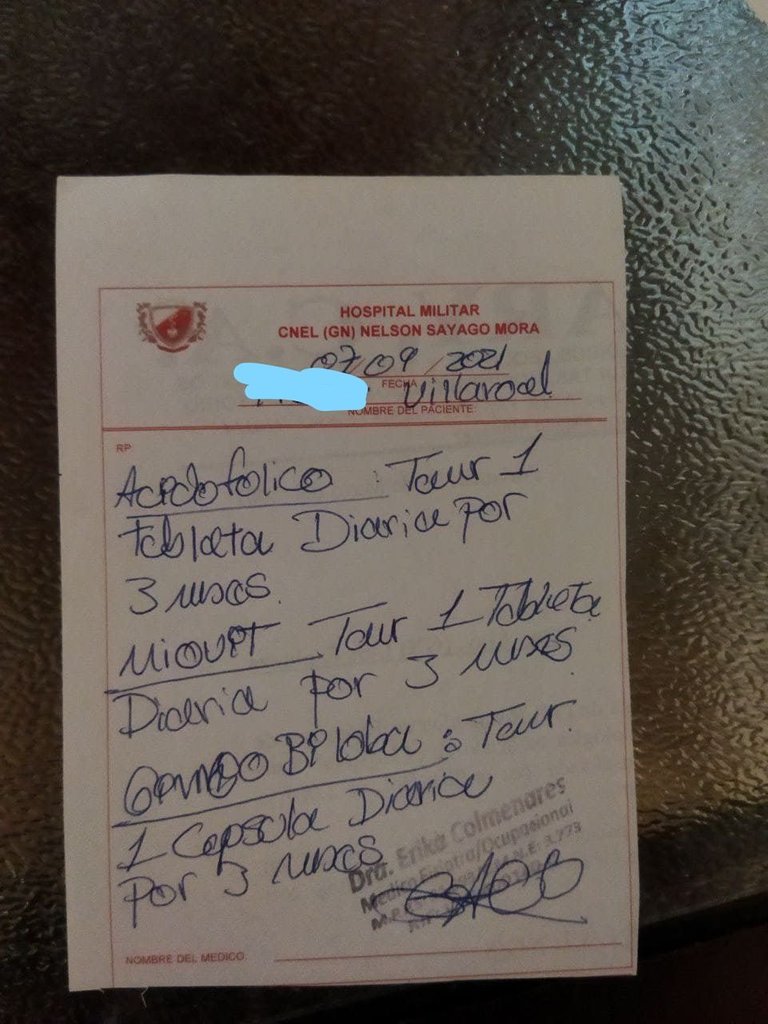 HOSPITAL MILITAR
CNEL (GN) NELSON SAYAGO MORA
07/09/2021
FECHA
Villaroel
NOMBRE DEL PACIENTE:
RP
Acidofolico : Tomar 1
tableta Diaria por
3 meses.
Tomar 1 Tableta
Diaria por 3 meses
Biloba : Tomar.
1 Capsula Diaria
por 3 meses
Dra. Erika Colmenares
NOMBRE DEL MEDICO: